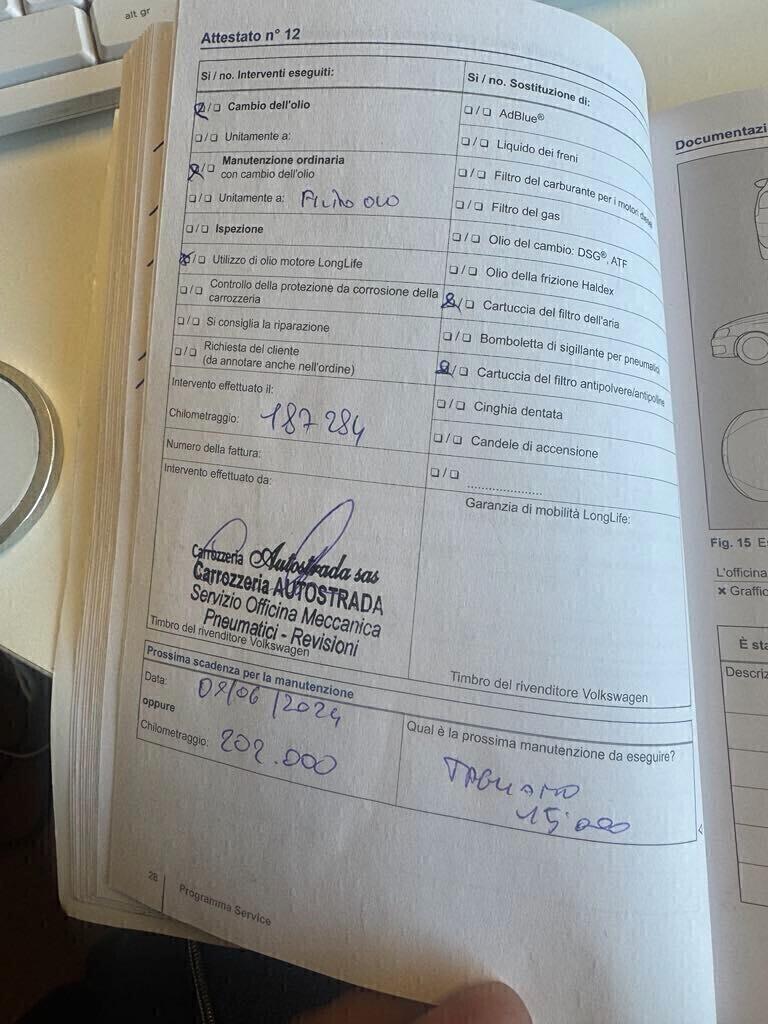 alt gr
Attestato n° 12
Si / no. Interventi eseguiti:
❏/❏ Cambio dell'olio
❏/❏ Unitamente a:
❏/❏ Manutenzione ordinaria
con cambio dell'olio
❏/❏ Unitamente a: Filtro olio
❏/❏ Ispezione
❏/❏ Utilizzo di olio motore LongLife
❏/❏ Controllo della protezione da corrosione della
carrozzeria
❏/❏ Si consiglia la riparazione
❏/❏ Richiesta del cliente
(da annotare anche nell'ordine)
Intervento effettuato il:
Chilometraggio: 187284
Numero della fattura:
Intervento effettuato da:
Carrozzeria Autostrada sas
Carrozzeria AUTOSTRADA
Servizio Officina Meccanica
Pneumatici - Revisioni
Timbro del rivenditore Volkswagen
Si / no. Sostituzione di:
❏/❏ AdBlue®
❏/❏ Liquido dei freni
❏/❏ Filtro del carburante per i motori diesel
❏/❏ Filtro del gas
❏/❏ Olio del cambio: DSG®, ATF
❏/❏ Olio della frizione Haldex
❏/❏ Cartuccia del filtro dell'aria
❏/❏ Bomboletta di sigillante per pneumatici
❏/❏ Cartuccia del filtro antipolvere/antipolline
❏/❏ Cinghia dentata
❏/❏ Candele di accensione
❏/❏ ......................
Garanzia di mobilità LongLife:
Timbro del rivenditore Volkswagen
Prossima scadenza per la manutenzione
Data: /06/2024
oppure
Chilometraggio: 202.000
Qual è la prossima manutenzione da eseguire?
TAGLIANDO
15.000
28 Programma Service
Documentazi
Fig. 15 Es
L'officina
✖ Graffic
È sta
Descriz